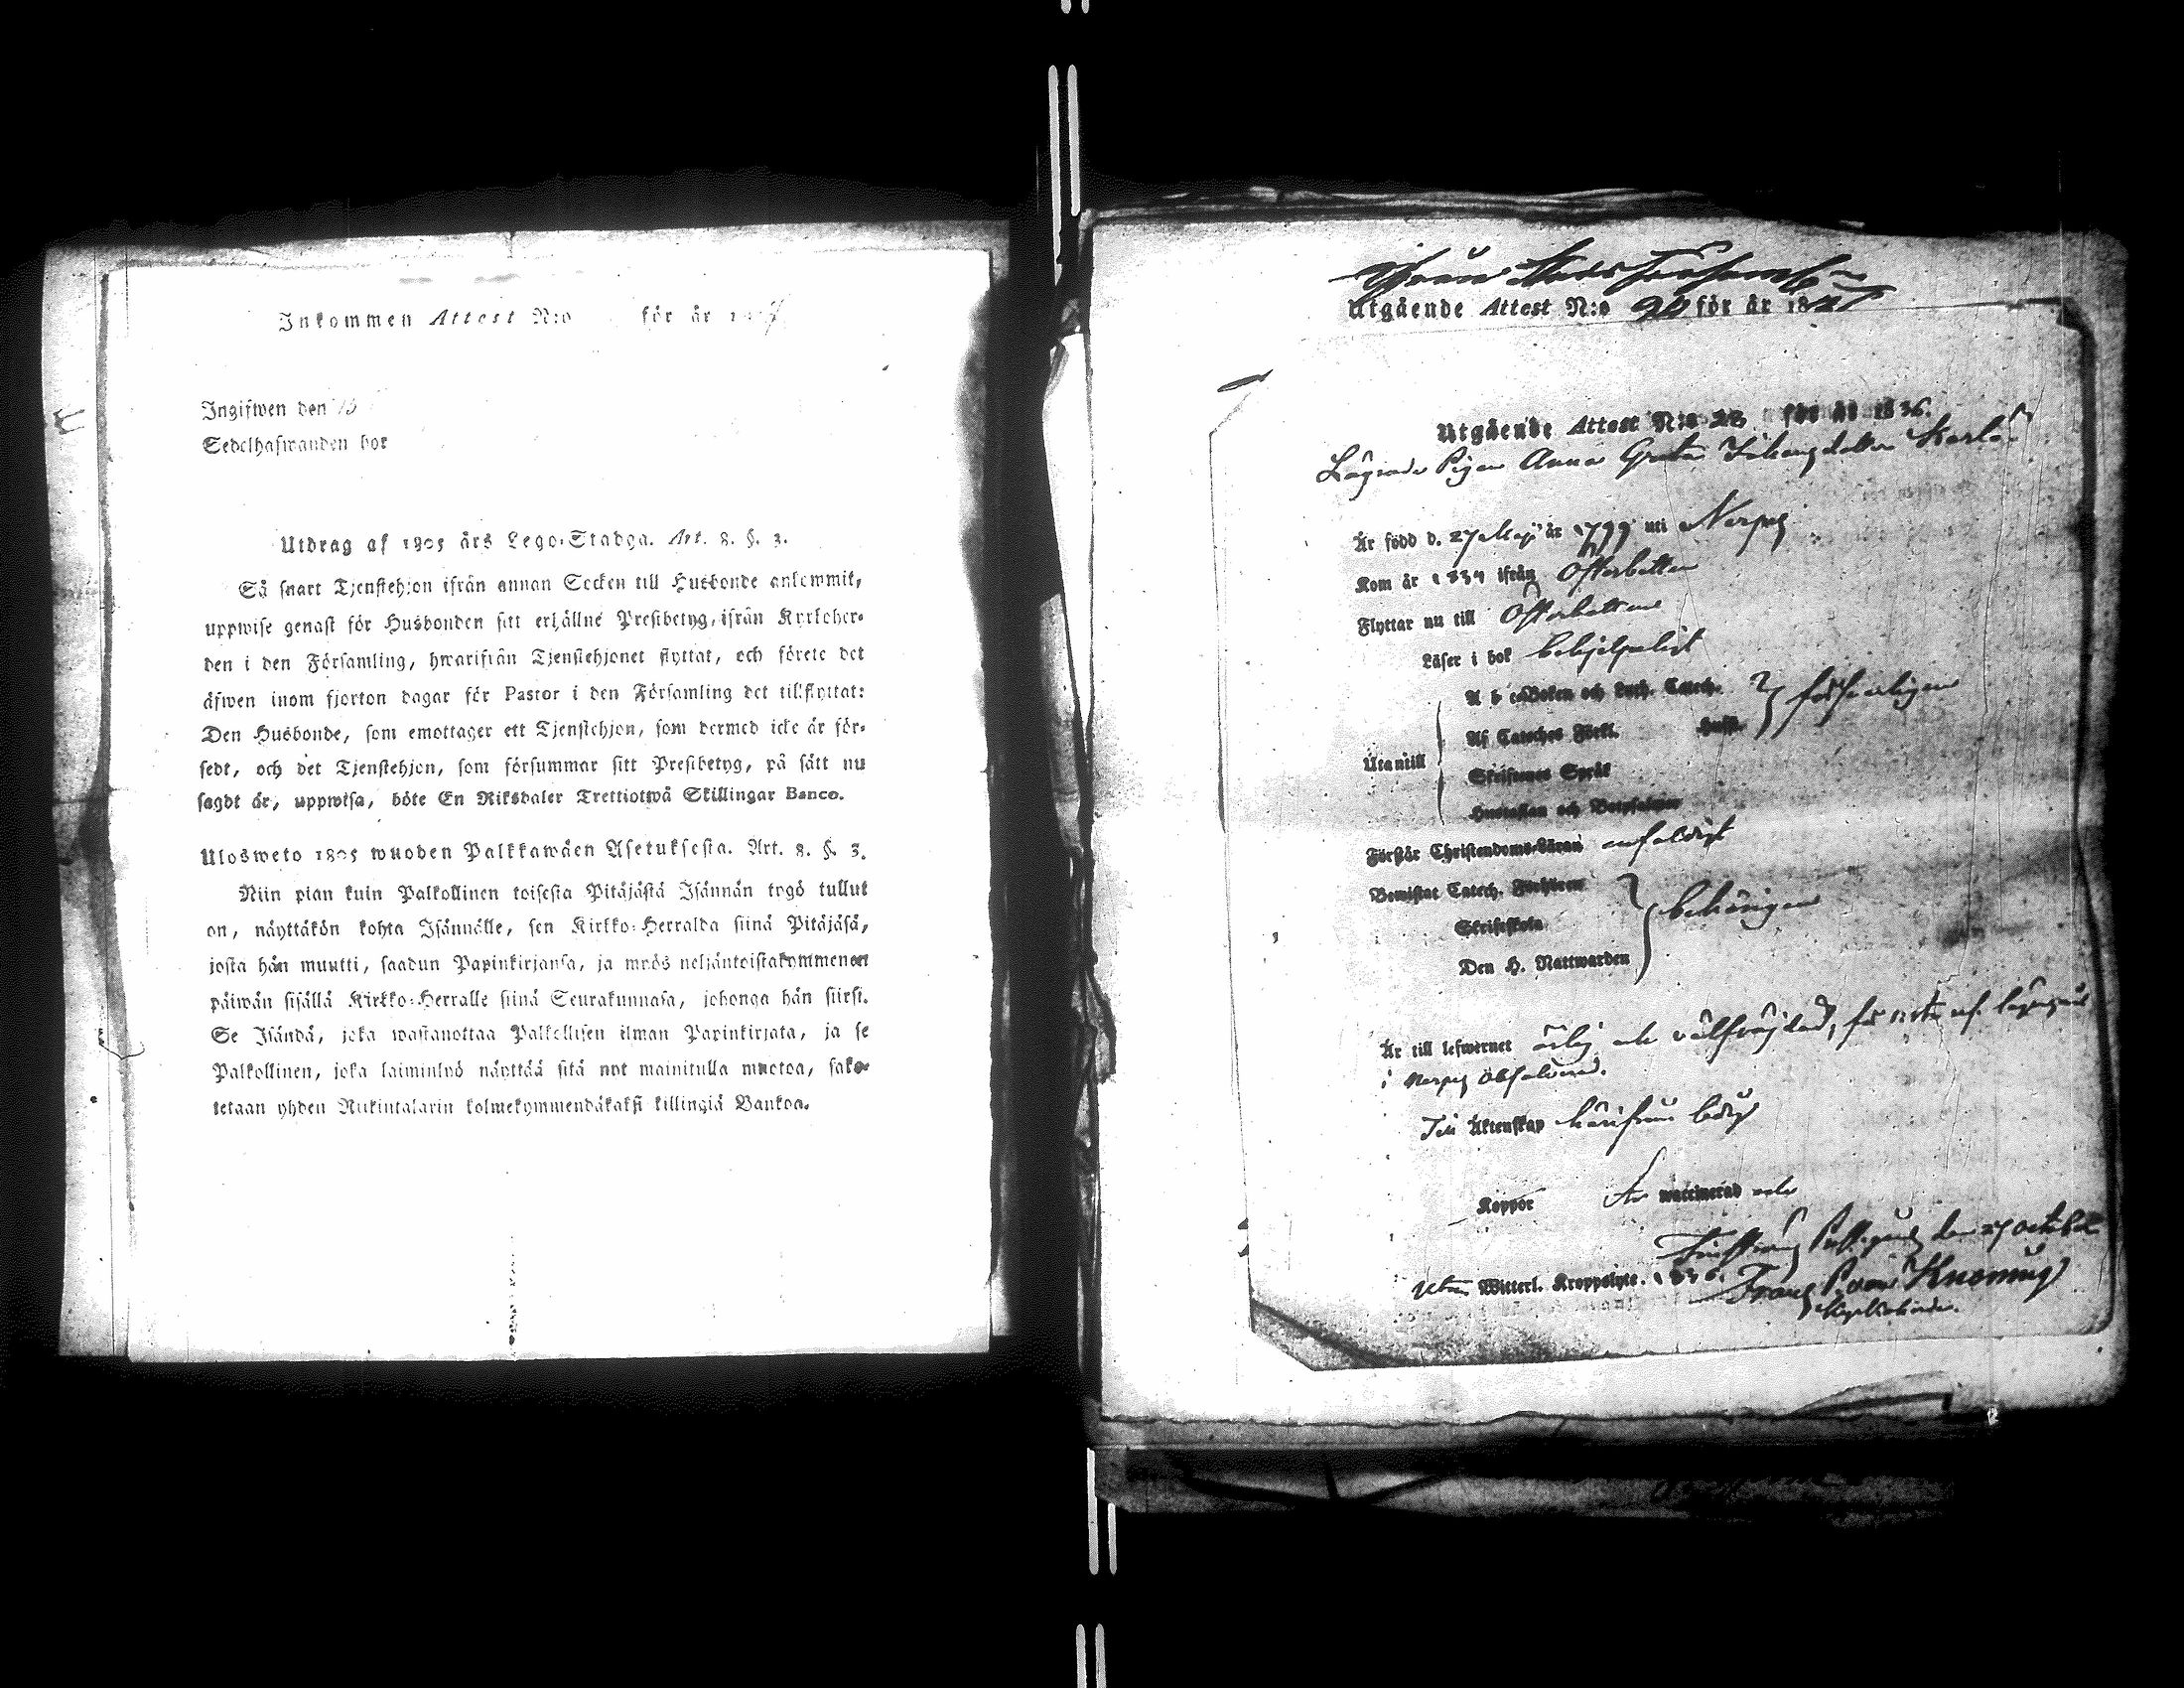 Inkommen Attest N:o för år 1
Ingifwen den 15
Sedelhafwanden bor
Utdrag af 1805 års Lego-Stadga. Art. 8. §. 3.
Så snart Tjenstehjon ifrån annan Socken till Husbonde ankommit,
uppwise genast för Husbonden sitt erhållne Prestbetyg, ifrån Kyrkoher-
den i den Församling, hwarifrån Tjenstehjonet flyttat, och förete det
äfwen inom fjorton dagar för Pastor i den Församling det tillflyttat:
Den Husbonde, som emottager ett Tjenstehjon, som dermed icke är för-
sedt, och det Tjenstehjon, som försummar sitt Prestbetyg, på sätt nu
sagdt är, uppwisa, böte En Riksdaler Trettiotwå Skillingar Banco.
Ulosweto 1805 wuoden Palkkawäen Asetuksesta. Art. 8. §. 3.
Niin pian kuin Palkollinen toisesta Pitäjästä Isännän tygö tullut
on, näyttäkön kohta Isännälle, sen Kirkko-Herralda siinä Pitäjäsä,
josta hän muutti, saadun Papinkirjansa, ja myös neljäntoistakymmenen
päiwän sisällä Kirkko-Herralle siinä Seurakunnasa, johonga hän siirsi.
Se Isändä, joka wastanottaa Palkollisen ilman Papinkirjata, ja se
Palkollinen, joka laiminlyö näyttää sitä nyt mainitulla muotoa, sako-
tetaan yhden Riikintalarin kolmekymmendäkaksi killingiä Bankoa.
Utgående Attest N:o 20 för år 18
Utgående Attest N:o 28 för år 1836.
Pigan Anna Greta Johansdotter
Är född d. 27 Maji år 1799 uti Nerpes
Kom år 1834 ifrån Österbotten
Flyttar nu till Österbotten
Läser i bok behjelpeligt
A b c-Boken och Luth. Catech.
Af Cateches Förkl. Hust. försvarligen
Utantill
Skriftenes Språk
Hustaflan och Botpsalmer
Förstår Christendoms-Läran enfaldigt
Bewistat Catech. Förhören
Skriftskola behörigen
Den H. Nattwarden
Är till lefwernet ärlig och välfrejdad, för
i Nerpes
Till Äktenskap härifrån ledig
Koppor Är waccinerad
den 27 October
utan Witterl. Kroppslyte. 1836. Frans Knorring